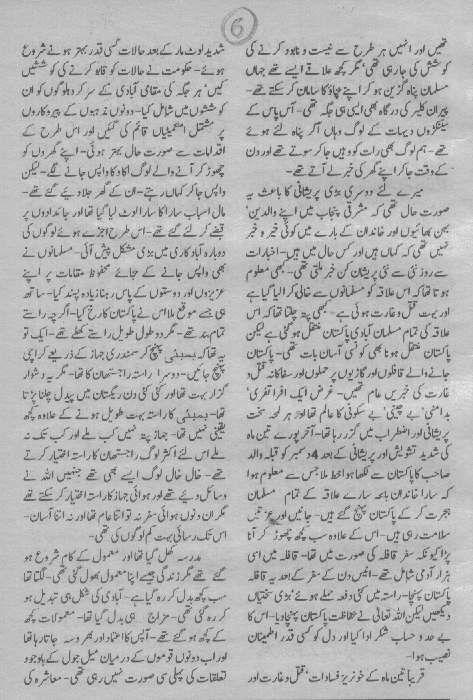 6
تھیں اور انہیں ہر طرح سے نیست و نابود کرنے کی
کوشش کی جا رہی تھی، مگر کچھ علاقے ایسے تھے جہاں
مسلمان پناہ گزین ہو کر اپنے بچاؤ کا سامان کر سکتے تھے-
پیران کلیر کی درگاہ بھی ایسی ہی جگہ تھی- آس پاس کے
سینکڑوں دیہات کے لوگ وہاں آ کر پناہ لئے ہوئے
تھے- ہم لوگ بھی رات کو وہیں جا کر سوتے تھے اور دن
کے وقت جا کر اپنے گھر کی خبر لے آتے تھے-
میرے لئے دوسری بڑی پریشانی کا باعث یہ
صورت حال تھی کہ مشرقی پنجاب میں اپنے والدین،
بہن بھائیوں اور خاندان کے بارے میں کوئی خبر
نہیں تھی کہ کہاں ہیں اور کس حال میں ہیں- اخبارات
سے روز نئی سے نئی پریشان کن خبر ملتی تھی- کبھی معلوم
ہوتا تھا کہ اس علاقہ کو مسلمانوں سے خالی کرا لیا گیا ہے
اور بہت قتل و غارت ہوئی ہے- کبھی پتہ چلتا تھا کہ اس
علاقہ کی تمام مسلمان آبادی پاکستان منتقل ہو گئی ہے لیکن
پاکستان منتقل ہونا بھی کونسی آسان بات تھی- پاکستان
جانے والے قافلوں اور گاڑیوں پر حملوں اور سفاکانہ قتل و
غارت کی خبریں عام تھیں- غرض ایک افراتفری،
بدامنی، بے چینی، بے سکونی کا عالم تھا اور ہر لمحہ سخت
پریشانی اور اضطراب میں گزر رہا تھا- آخر پورے تین ماہ
کی شدید تشویش اور پریشانی کے بعد 4 دسمبر کو قبلہ والد
صاحب کا پاکستان سے لکھا ہوا خط ملا جس سے معلوم ہوا
کہ سارا خاندان بلکہ سارے علاقہ کے تمام مسلمان
ہجرت کر کے پاکستان پہنچ گئے ہیں- جانیں اور عزتیں
سلامت رہی ہیں- اس کے علاوہ سب کچھ چھوڑ کر آنا
پڑا کیونکہ سفر قافلہ کی صورت میں تھا- قافلہ میں اسی
ہزار آدمی شامل تھے- انیس دن کے سفر کے بعد یہ قافلہ
پاکستان پہنچا- راستہ میں کئی دفعہ حملے ہوئے، بڑی سختیاں
دیکھیں لیکن اللہ تعالیٰ نے حفاظت پاکستان پہنچا دیا- اس کا
بے حد و حساب شکر ادا کیا اور دل کو کسی قدر اطمینان
نصیب ہوا-
قریباً تین ماہ کے خونریز فسادات، قتل و غارت اور
شدید لوٹ مار کے بعد حالات کسی قدر بہتر ہونے شروع
ہوئے- حکومت نے حالات کو قابو کرنے کی کوششیں
کیں، ہر جگہ کی مقامی آبادی کے سرکردہ لوگوں کو ان
کوششوں میں شامل کیا- دونوں مذہبوں کے پیروکاروں
پر مشتمل امن کمیٹیاں قائم کی گئیں اور اس طرح کے
اقدامات سے صورت حال بہتر ہوئی- اپنے گھروں کو
چھوڑ کر آنے والے لوگ اکا دکا واپس جانے لگے- لیکن
واپس جا کر کہاں رہتے- ان کے گھر جلا دیئے گئے تھے-
مال اسباب سارا کا سارا لوٹ لیا گیا تھا اور جائدادوں پر
قبضے کر لئے گئے تھے- اس طرح اجڑے ہوئے لوگوں کی
دوبارہ آباد کاری میں بڑی مشکل پیش آئی- مسلمانوں نے
بھی واپس جانے کے بجائے محفوظ مقامات پر اپنے
عزیزوں اور دوستوں کے پاس رہنا زیادہ پسند کیا- ساتھ
ہی جسے موقع ملا اس نے پاکستان کا رخ کیا- اگرچہ راستے
تمام بند تھے- مگر دو طول طویل راستے کھلے تھے- ایک تو
یہ تھا کہ بمبئی پہنچ کر سمندری جہاز کے ذریعے کراچی
پہنچ جائیں- دوسرا راستہ راجستھان کا تھا- مگر یہ دشوار
گزار بہت تھا اور کئی کئی دن ریگستان میں پیدل چلنا پڑتا
تھا- بمبئی کا راستہ بہت طویل ہونے کے علاوہ کچھ
یقینی نہیں تھا- جہاز پتہ نہیں کب ملے اور کب تک نہ
ملے اس لئے اکثر لوگ راجستھان کا راستہ اختیار کرتے
تھے- خال خال لوگ ایسے بھی تھے جنہیں اللہ نے
وسائل دیئے تھے اور ہوائی جہاز کا راستہ اختیار کر سکتے تھے
مگر ان دنوں ہوائی سفر نہ تو اتنا عام تھا اور نہ اتنا آسان-
اس تک رسائی بہت کم لوگوں کی تھی-
مدرسہ کھل گیا تھا اور معمول کے کام شروع ہو
گئے تھے مگر زندگی جیسے اپنا معمول بھول گئی تھی- لگتا تھا
سب کچھ بدل کر رہ گیا ہے- آبادی کی شکل ہی تبدیل ہو
کر رہ گئی تھی- مزاج ہی بدل گیا تھا- معمولات کچھ
کے کچھ ہو گئے تھے- آپس کا اعتماد اور بھروسہ جاتا رہا تھا
اور اب دونوں قوموں کے درمیان میل جول کے باوجود
تعلقات کی پہلی سی صورت نہیں رہی تھی- معاشرہ کی